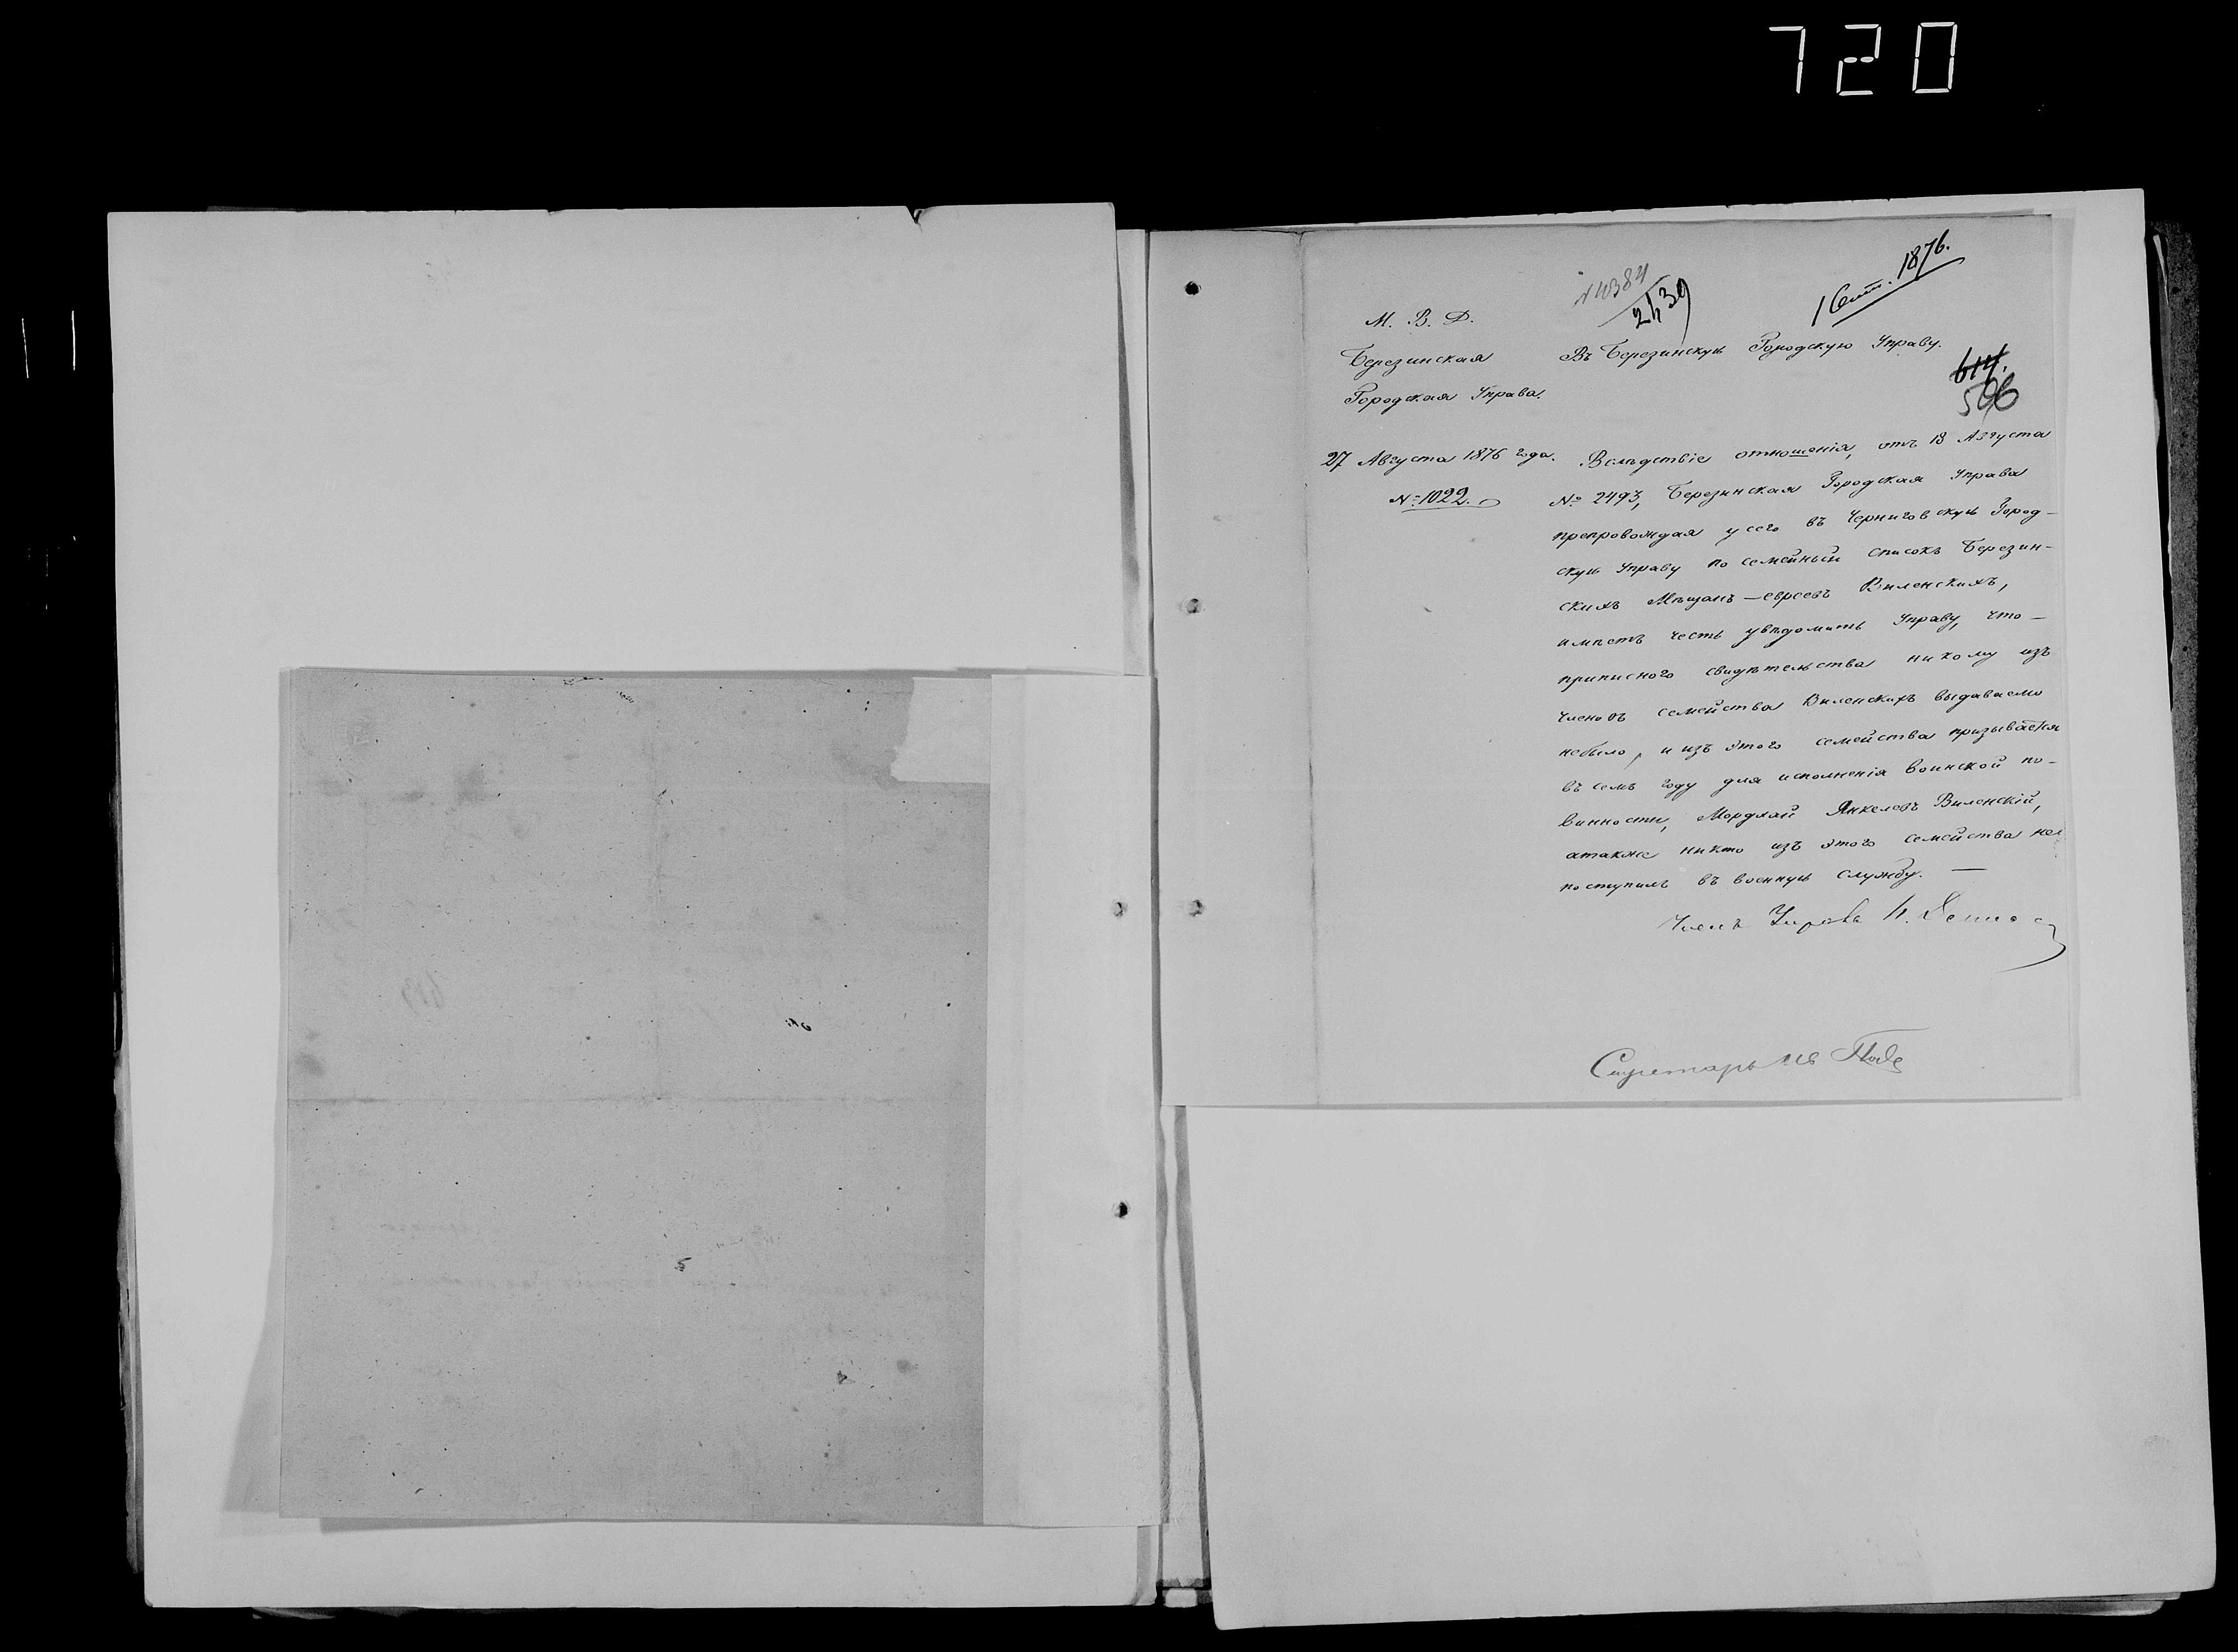 720
1 Сент. 1876.
№ 4384
2439
М. В. Д.
Березинская
Городская Управа.
27 Августа 1876 года.
№ 1022.
Въ Березинскую Городскую Управу.
614.
506
Вслѣдствіе отношенія, отъ 18 Августа
№ 2493, Березинская Городская Управа
препровождая у сего въ Черниговскую Город-
скую Управу посемейный списокъ Березин-
скихъ Мѣщанъ-евреевъ Виленскихъ,
имѣетъ честь увѣдомить Управу, что-
приписного свидѣтельства никому изъ
членовъ семейства Виленскихъ выдаваемо
небыло, и изъ этого семейства призывается
въ семъ году для исполненія воинской по-
винности, Мордхай Янкелевъ Виленскій,
атакже никто изъ этого семейства не
поступилъ въ военную службу. —
Членъ Управы
Секретарь